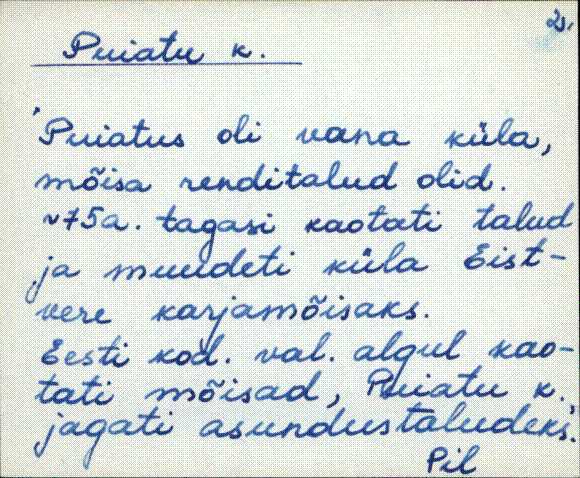 2.
Puiatu k.
"Puiatus oli vana küla,
mõisa renditalud olid.
~75a. tagasi kaotati talud
ja muudeti küla Eist-
vere karjamõisaks.
Eesti kod. val. algul kao-
tati mõisad, Puiatu k.
jagati asundustaludeks."
Pil